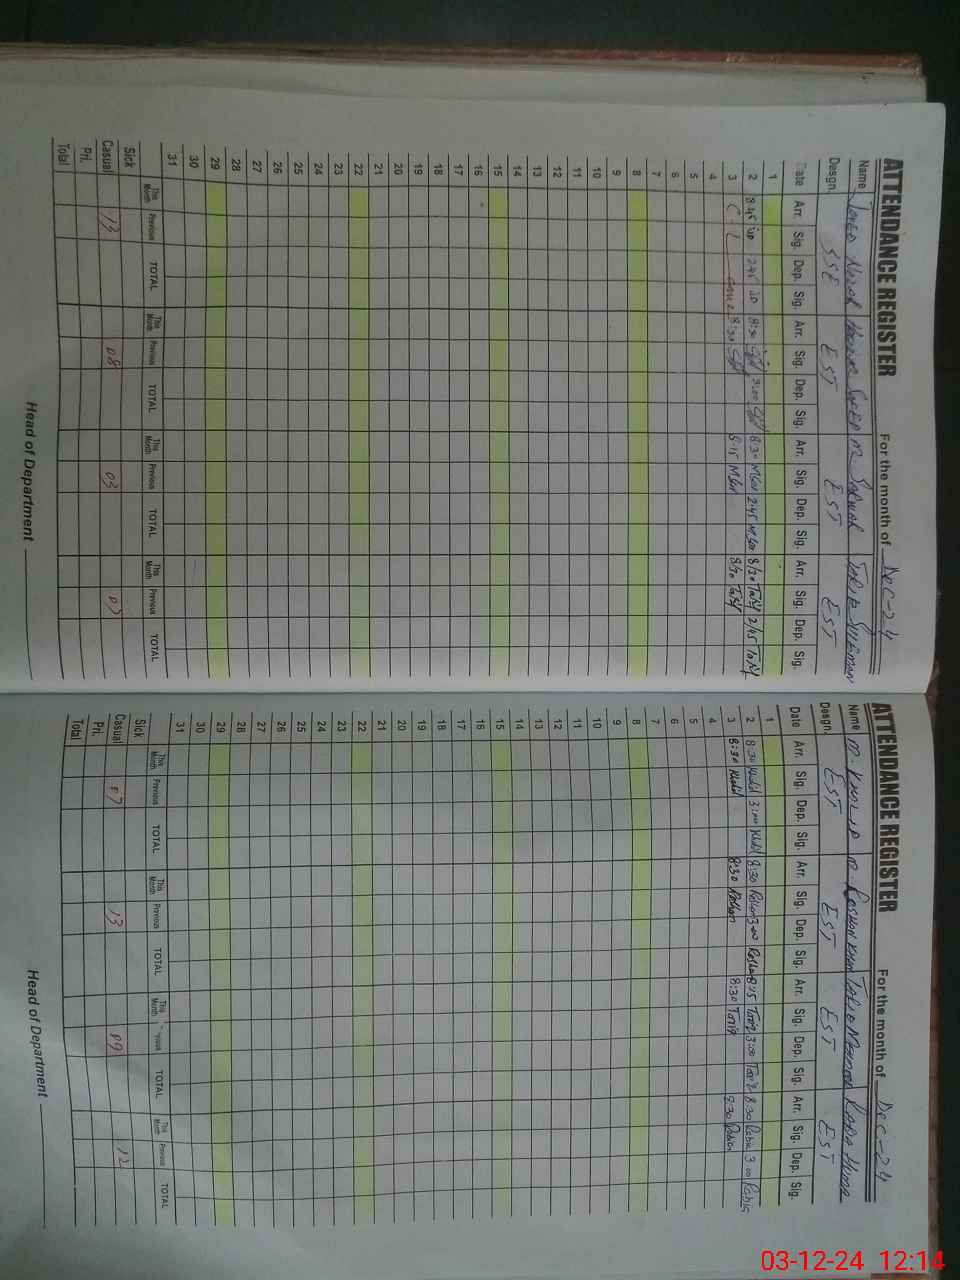 ATTENDANCE REGISTER
For the month of Dec-24
Name
Desgn. SSE EST EST EST
Date Arr. Sig. Dep. Sig. Arr. Sig. Dep. Sig. Arr. Sig. Dep. Sig. Arr. Sig. Dep. Sig.
1
2 8:45 2:45 8:30 3:00 8:30 2:45 8/30 2/45
3 C L 8:30 8:15 8/30
4
5
6
7
8
9
10
11
12
13
14
15
16
17
18
19
20
21
22
23
24
25
26
27
28
29
30
31
This Month Previous TOTAL This Month Previous TOTAL This Month Previous TOTAL This Month Previous TOTAL
Sick
Casual 13 08 03 07
Pri.
Total
Head of Department
ATTENDANCE REGISTER
For the month of Dec-24
Name M. KHALID M. ROSHAN KHAN
Desgn. EST EST EST EST
Date Arr. Sig. Dep. Sig. Arr. Sig. Dep. Sig. Arr. Sig. Dep. Sig. Arr. Sig. Dep. Sig.
1
2 8:30 Khalid 3:00 Khalid 8:30 Roshan 3:00 Roshan 8:15 Tariq 3:00 Tariq 8:30 Rabia 3:00 Rabia
3 8:30 Khalid 8:30 Roshan 8:30 Tariq 8:30 Rabia
4
5
6
7
8
9
10
11
12
13
14
15
16
17
18
19
20
21
22
23
24
25
26
27
28
29
30
31
This Month Previous TOTAL This Month Previous TOTAL This Month Previous TOTAL This Month Previous TOTAL
Sick
Casual 07 13 09 12
Pri.
Total
Head of Department
03-12-24 12:14